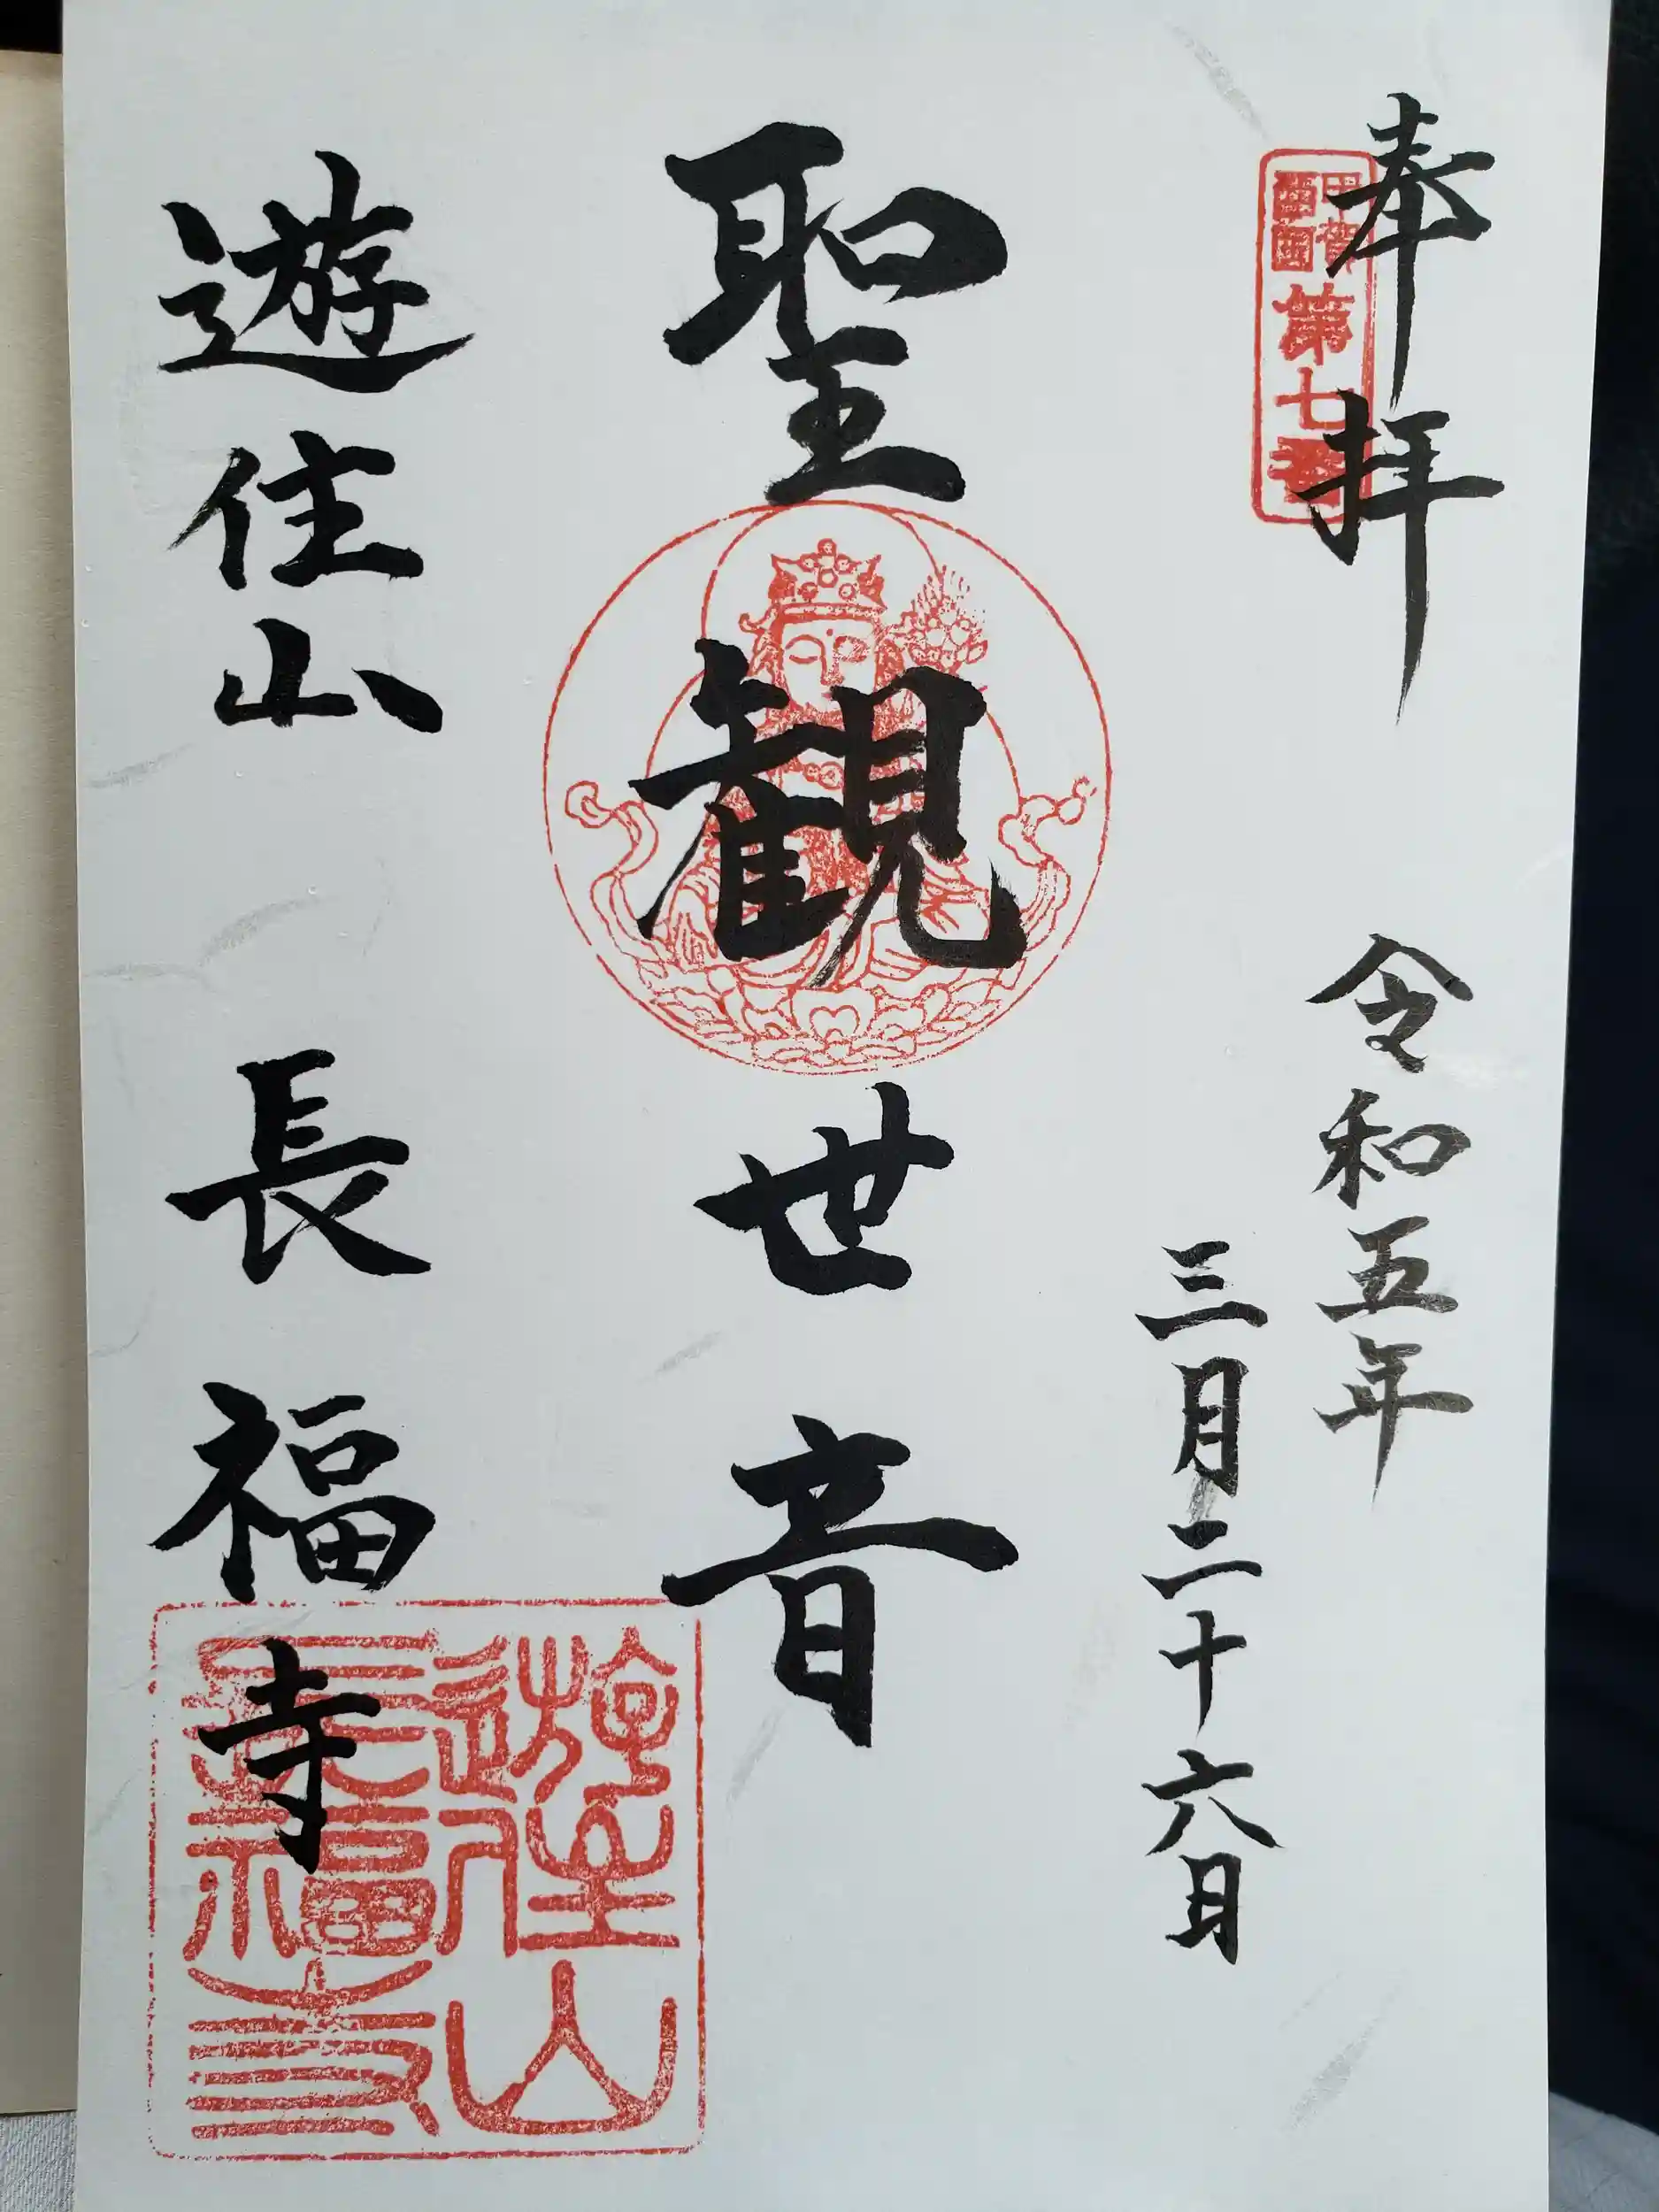 奉拝
甲賀
西国
第七番
令和五年
三月二十六日
聖観世音
遊住山
長福寺
遊住山
長福寺